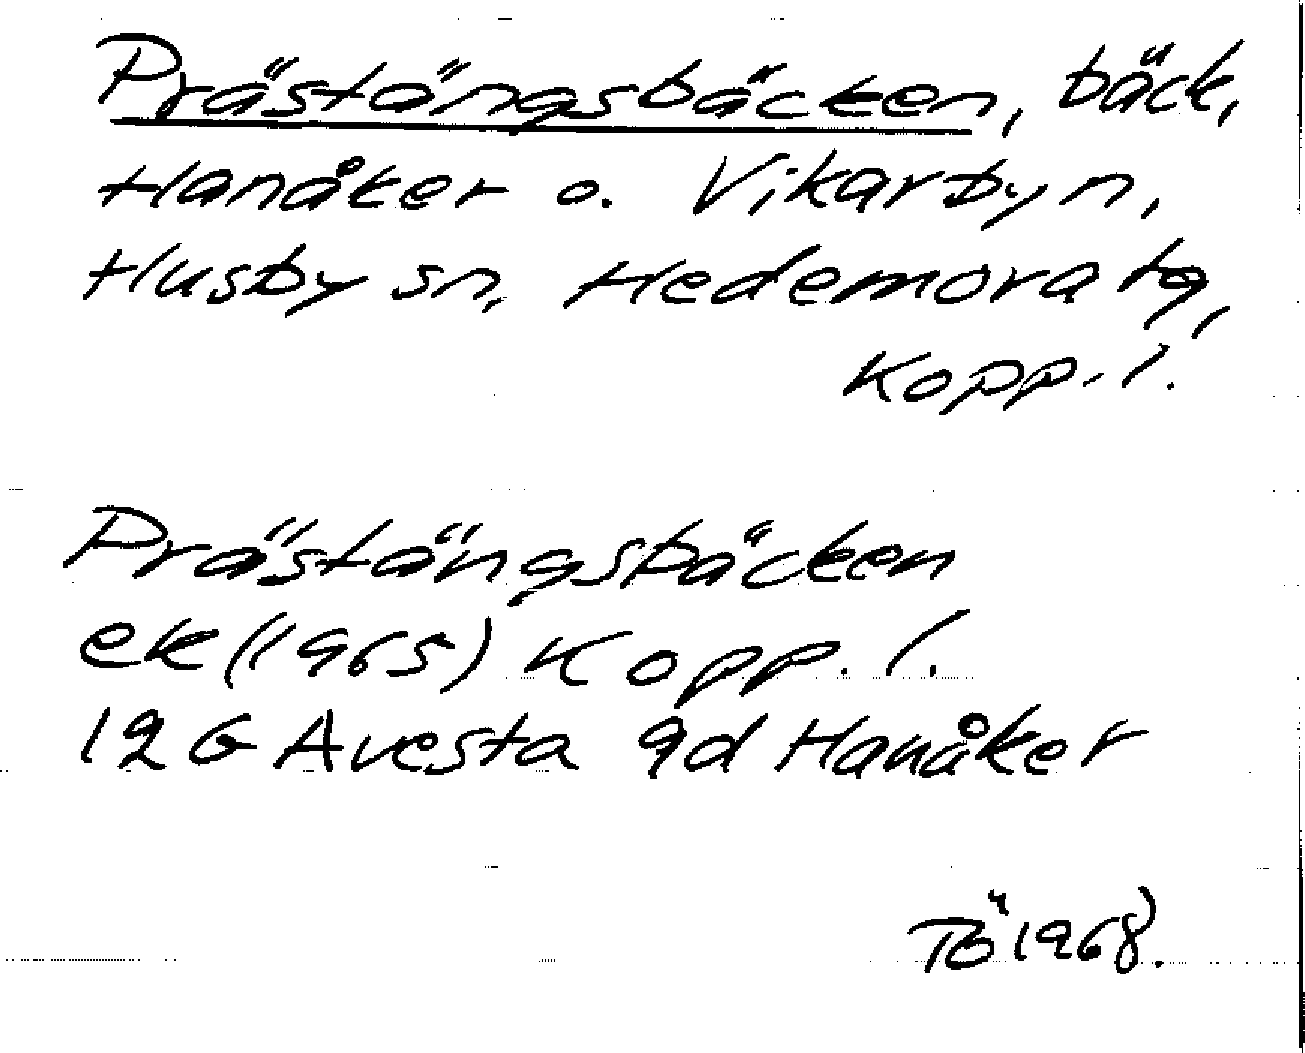 Prästängsbäcken, bäck,
Hanåker o. Vikarbyn,
Husby sn, Hedemora tg,
Kopp. l.
Prästängsbäcken
ek (1965) Kopp. l.
12 G Avesta 9d Hanåker
TÖ 1968.